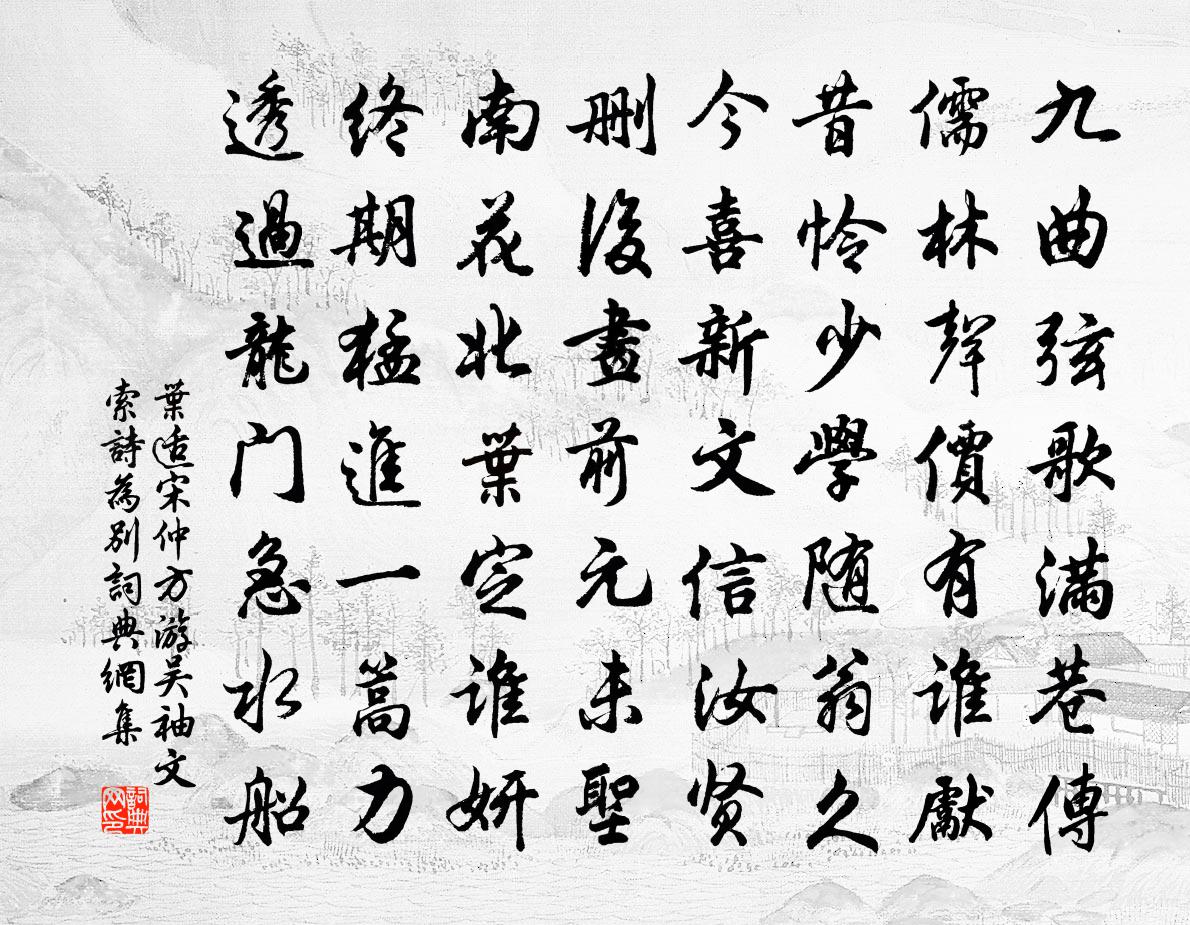 九曲弦歌滿巷傳
儒林聲價有誰獻
昔怜少學隨翁久
今喜新文信汝贤
删後畫前元未聖
南花北葉定誰妍
終期猛進一篙力
透過龍门急水船
葉适宋仲方游吴袖文
索詩為别詞典網集